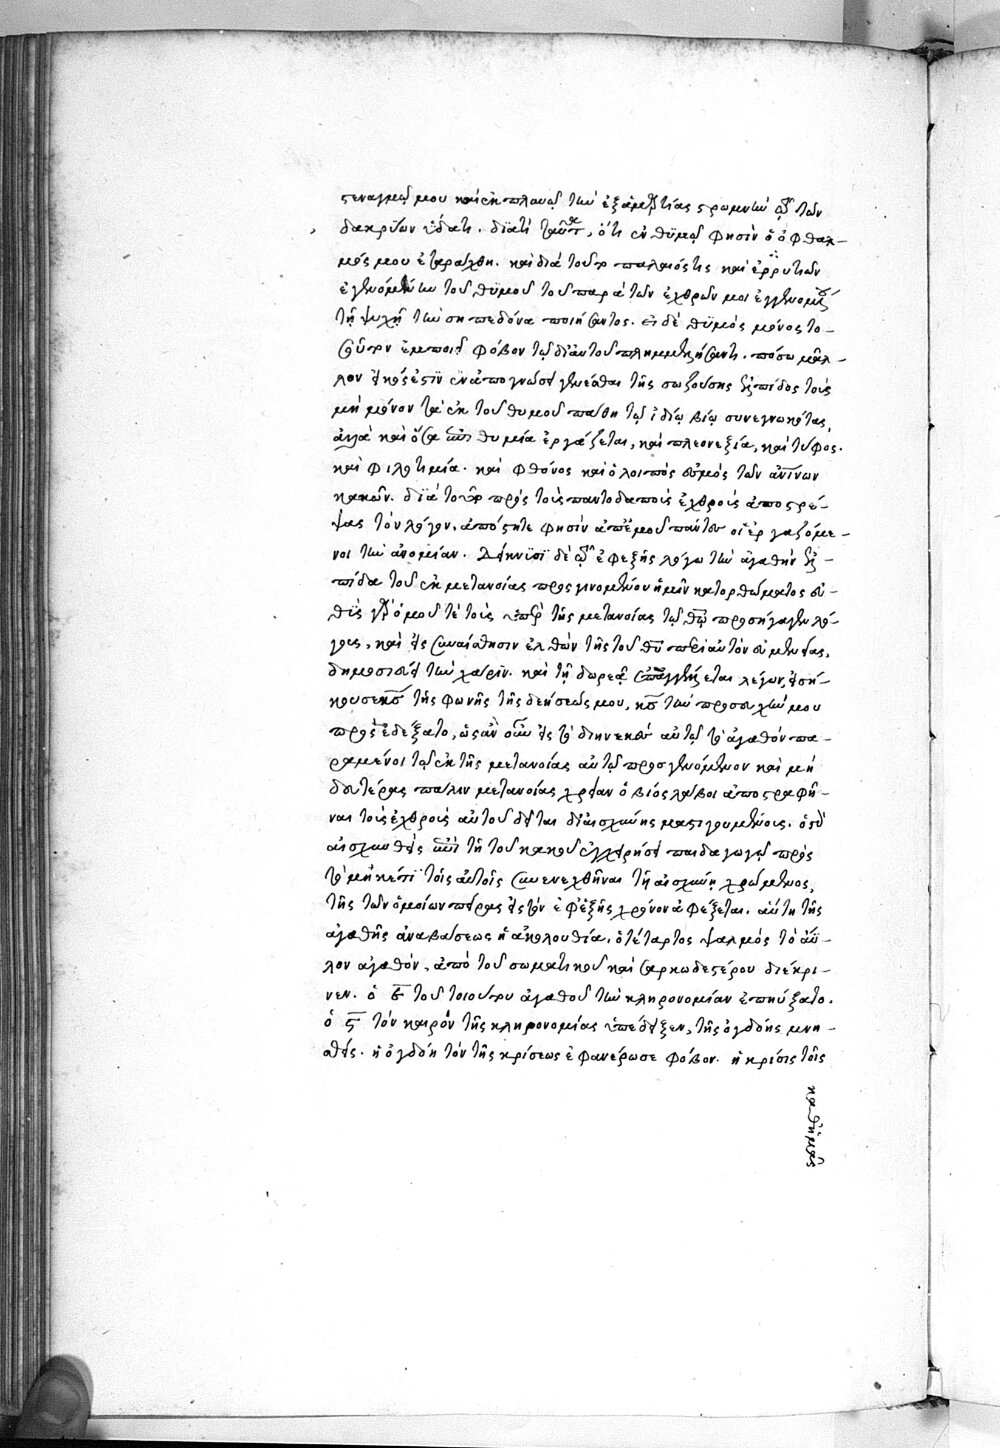 στεναγμῷ μου καὶ ἐκπλυνῶ τὴν ἐξ ἁμαρτίας στρωμνὴν ἐν τῶν
δακρύων ὕδατι. διατί ταῦτα, ὅτι ἐν θυμῷ φησὶν ὁ ὀφθαλ-
μός μου ἐταράχθη. καὶ διὰ τοῦτο παλαιότης καὶ
ἐγενόμην τοῦ θυμοῦ τοῦ παρὰ τῶν ἐχθρῶν μοι ἐγγενομένου
τῇ ψυχῇ τὴν σηπεδόνα ποιήσαντος. εἰ δὲ θυμὸς μόνος το-
σοῦτον ἐμποιεῖ φόβον τῷ δι' αὐτοῦ πλημμελήσαντι. πόσω μᾶλ-
λον εἰκός ἐστιν ἐν ἀπογνώσει γενέσθαι τῆς σωζούσης ἐλπίδος τοὺς
μὴ μόνον τὰ ἐκ τοῦ θυμοῦ πάθη τῷ ἰδίῳ βίῳ συνεγνωκότας,
ἀλλὰ καὶ ὅσα ἐπιθυμία ἐργάζεται, καὶ πλεονεξία, καὶ τύφος.
καὶ φιλοτιμία. καὶ φθόνος καὶ ὁ λοιπὸς ἐσμὸς τῶν ἀνθρωπίνων
κακῶν. διὰ τοῦτο πρὸς τοὺς παντοδαποὺς ἐχθροὺς ἀποστρέ-
ψας τὸν λόγον, ἀπόστητε φησὶν ἀπ' ἐμοῦ πάντες οἱ ἐργαζόμε-
νοι τὴν ἀνομίαν. δείκνυσι δὲ ἐν τῷ ἐφεξῆς λόγω τὴν ἀγαθὴν ἐλ-
πίδα τοῦ ἐκ μετανοίας προσγινομένου ἡμῖν κατορθώματος εὐ-
θὺς γὰρ ὁμοῦ τε τοὺς ὑπὲρ τῆς μετανοίας τῷ θῷ προσήγαγεν λό-
γους, καὶ εἰς συναίσθησιν ἐλθὼν τῆς τοῦ θῦ περὶ αὐτὸν εὐμενείας,
δημοσιεύει τὴν χάριν. καὶ τῇ δωρεᾷ ἐπαγγέλλεται λέγων, εἰσή-
κουσε κς τῆς φωνῆς τῆς δεήσεώς μου, κς τὴν προσευχήν μου
προσεδέξατο, ὡς ἂν οὖν εἰς τὸ διηνεκὲς αὐτῷ τὸ ἀγαθὸν πα-
ραμένοι τῷ ἐκ τῆς μετανοίας αὐτῷ προσγενόμενον καὶ μὴ
δευτέρας πάλιν μετανοίας χρείαν ὁ βίος λάβοι ἀποστραφῆ-
ναι τοὺς ἐχθροὺς αὐτοῦ δεῖται δι' αἰσχύνης μαστιγουμένους. ὁ γὰρ
αἰσχυνθεὶς ἐπὶ τῇ τοῦ κακοῦ ἐγχειρήσει παιδαγωγῷ πρὸς
τὸ μηκέτι τοῖς αὐτοῖς συνενεχθῆναι τῇ αἰσχύνῃ χρώμενος,
τῆς τῶν ὁμοίων πείρας εἰς τὸν ἐφεξῆς χρόνον ἀφέξεται. αὕτη τῆς
ἀγαθῆς ἀναβάσεως ἡ ἀκολουθία. ὁ τέταρτος ψαλμὸς τὸ ἄϋ-
λον ἀγαθὸν, ἀπὸ τοῦ σωματικοῦ καὶ σαρκωδεστέρου διέκρι-
νεν. ὁ ε τοῦ τοιούτου ἀγαθοῦ τὴν κληρονομίαν ἐπηύξατο.
ὁ ϛ τὸν καιρὸν τῆς κληρονομίας ὑπέδειξεν, τῆς ὀγδόης μνη-
σθείς. ἡ ὀγδόη τὸν τῆς κρίσεως ἐφανέρωσε φόβον. ἡ κρίσις τοῖς
καθ' ἡμᾶς